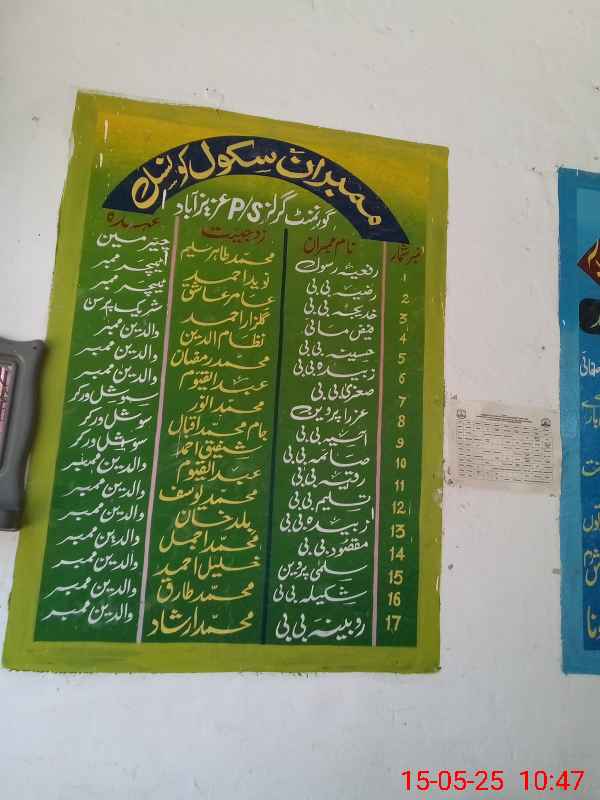 ممبران سکول کونسل
گورنمنٹ گرلز P/S عزیز آباد
نمبر شمار نام ممبران زوجیت عہدہ
1 رفعیہ رسول محمد طاہر سلیم چیئرمین
2 رضیہ بی بی نوید احمد ٹیچر ممبر
3 خدیجہ بی بی عامر عاشق ٹیچر ممبر
4 فیض مائی گلزار احمد شریک پرسن
5 حسینہ بی بی نظام الدین والدین ممبر
6 زبیدہ بی بی محمد رمضان والدین ممبر
7 صغریٰ بی بی عبدالقیوم والدین ممبر
8 عزرا پروین محمد انور سوشل ورکر
9 آسیہ بی بی جام محمد اقبال سوشل ورکر
10 صائمہ بی بی شفیق احمد سوشل ورکر
11 رقیہ بی بی عبدالقیوم والدین ممبر
12 تسلیم بی بی محمد یوسف والدین ممبر
13 زبیدہ بی بی بلد خان والدین ممبر
14 مقصود بی بی محمد اجمل والدین ممبر
15 سلمیٰ پروین خلیل احمد والدین ممبر
16 شکیلہ بی بی محمد طارق والدین ممبر
17 روبینہ بی بی محمد ارشاد والدین ممبر
15-05-25 10:47